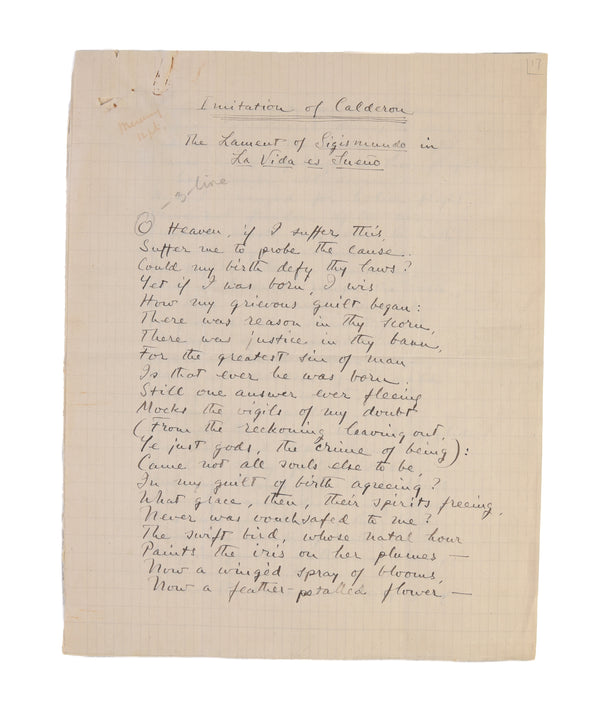 17
Imitation of Calderon
The Lament of Sigismundo in
La Vida es Sueno
3-line
O Heaven, if I suffer this,
Suffer me to probe the cause:
Could my birth defy thy laws?
Yet if I was born, I wis
How my grievous guilt began:
There was reason in thy scorn,
There was justice in thy bann,
For the greatest sin of man
Is that ever he was born.
Still one answer ever fleeing
Mocks the vigils of my doubt
(From the reckoning leaving out,
Ye just gods, the crime of being):
Came not all souls else to be,
In my guilt of birth agreeing?
What grace, then, their spirits freeing,
Never was vouchsafed to me?
The swift bird, whose natal hour
Paints the iris on her plumes —
Now a wingèd spray of blooms,
Now a feather-petalled flower —